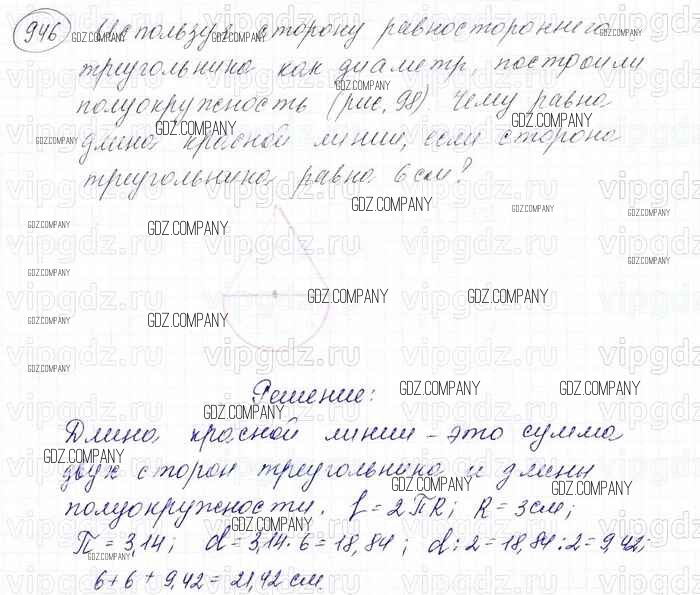 946 Используя сторону равностороннего
треугольника как диаметр, построили
полуокружность (рис. 98) Чему равна
длина красной линии, если сторона
треугольника равна 6 см?
Решение:
Длина красной линии – это сумма
двух сторон треугольника и длины
полуокружности. l = 2ПR; R = 3см;
П = 3,14; d = 3,14 · 6 = 18,84; d : 2 = 18,84 : 2 = 9,42;
6 + 6 + 9,42 = 21,42 см.
GDZ.COMPANY
vipgdz.ru